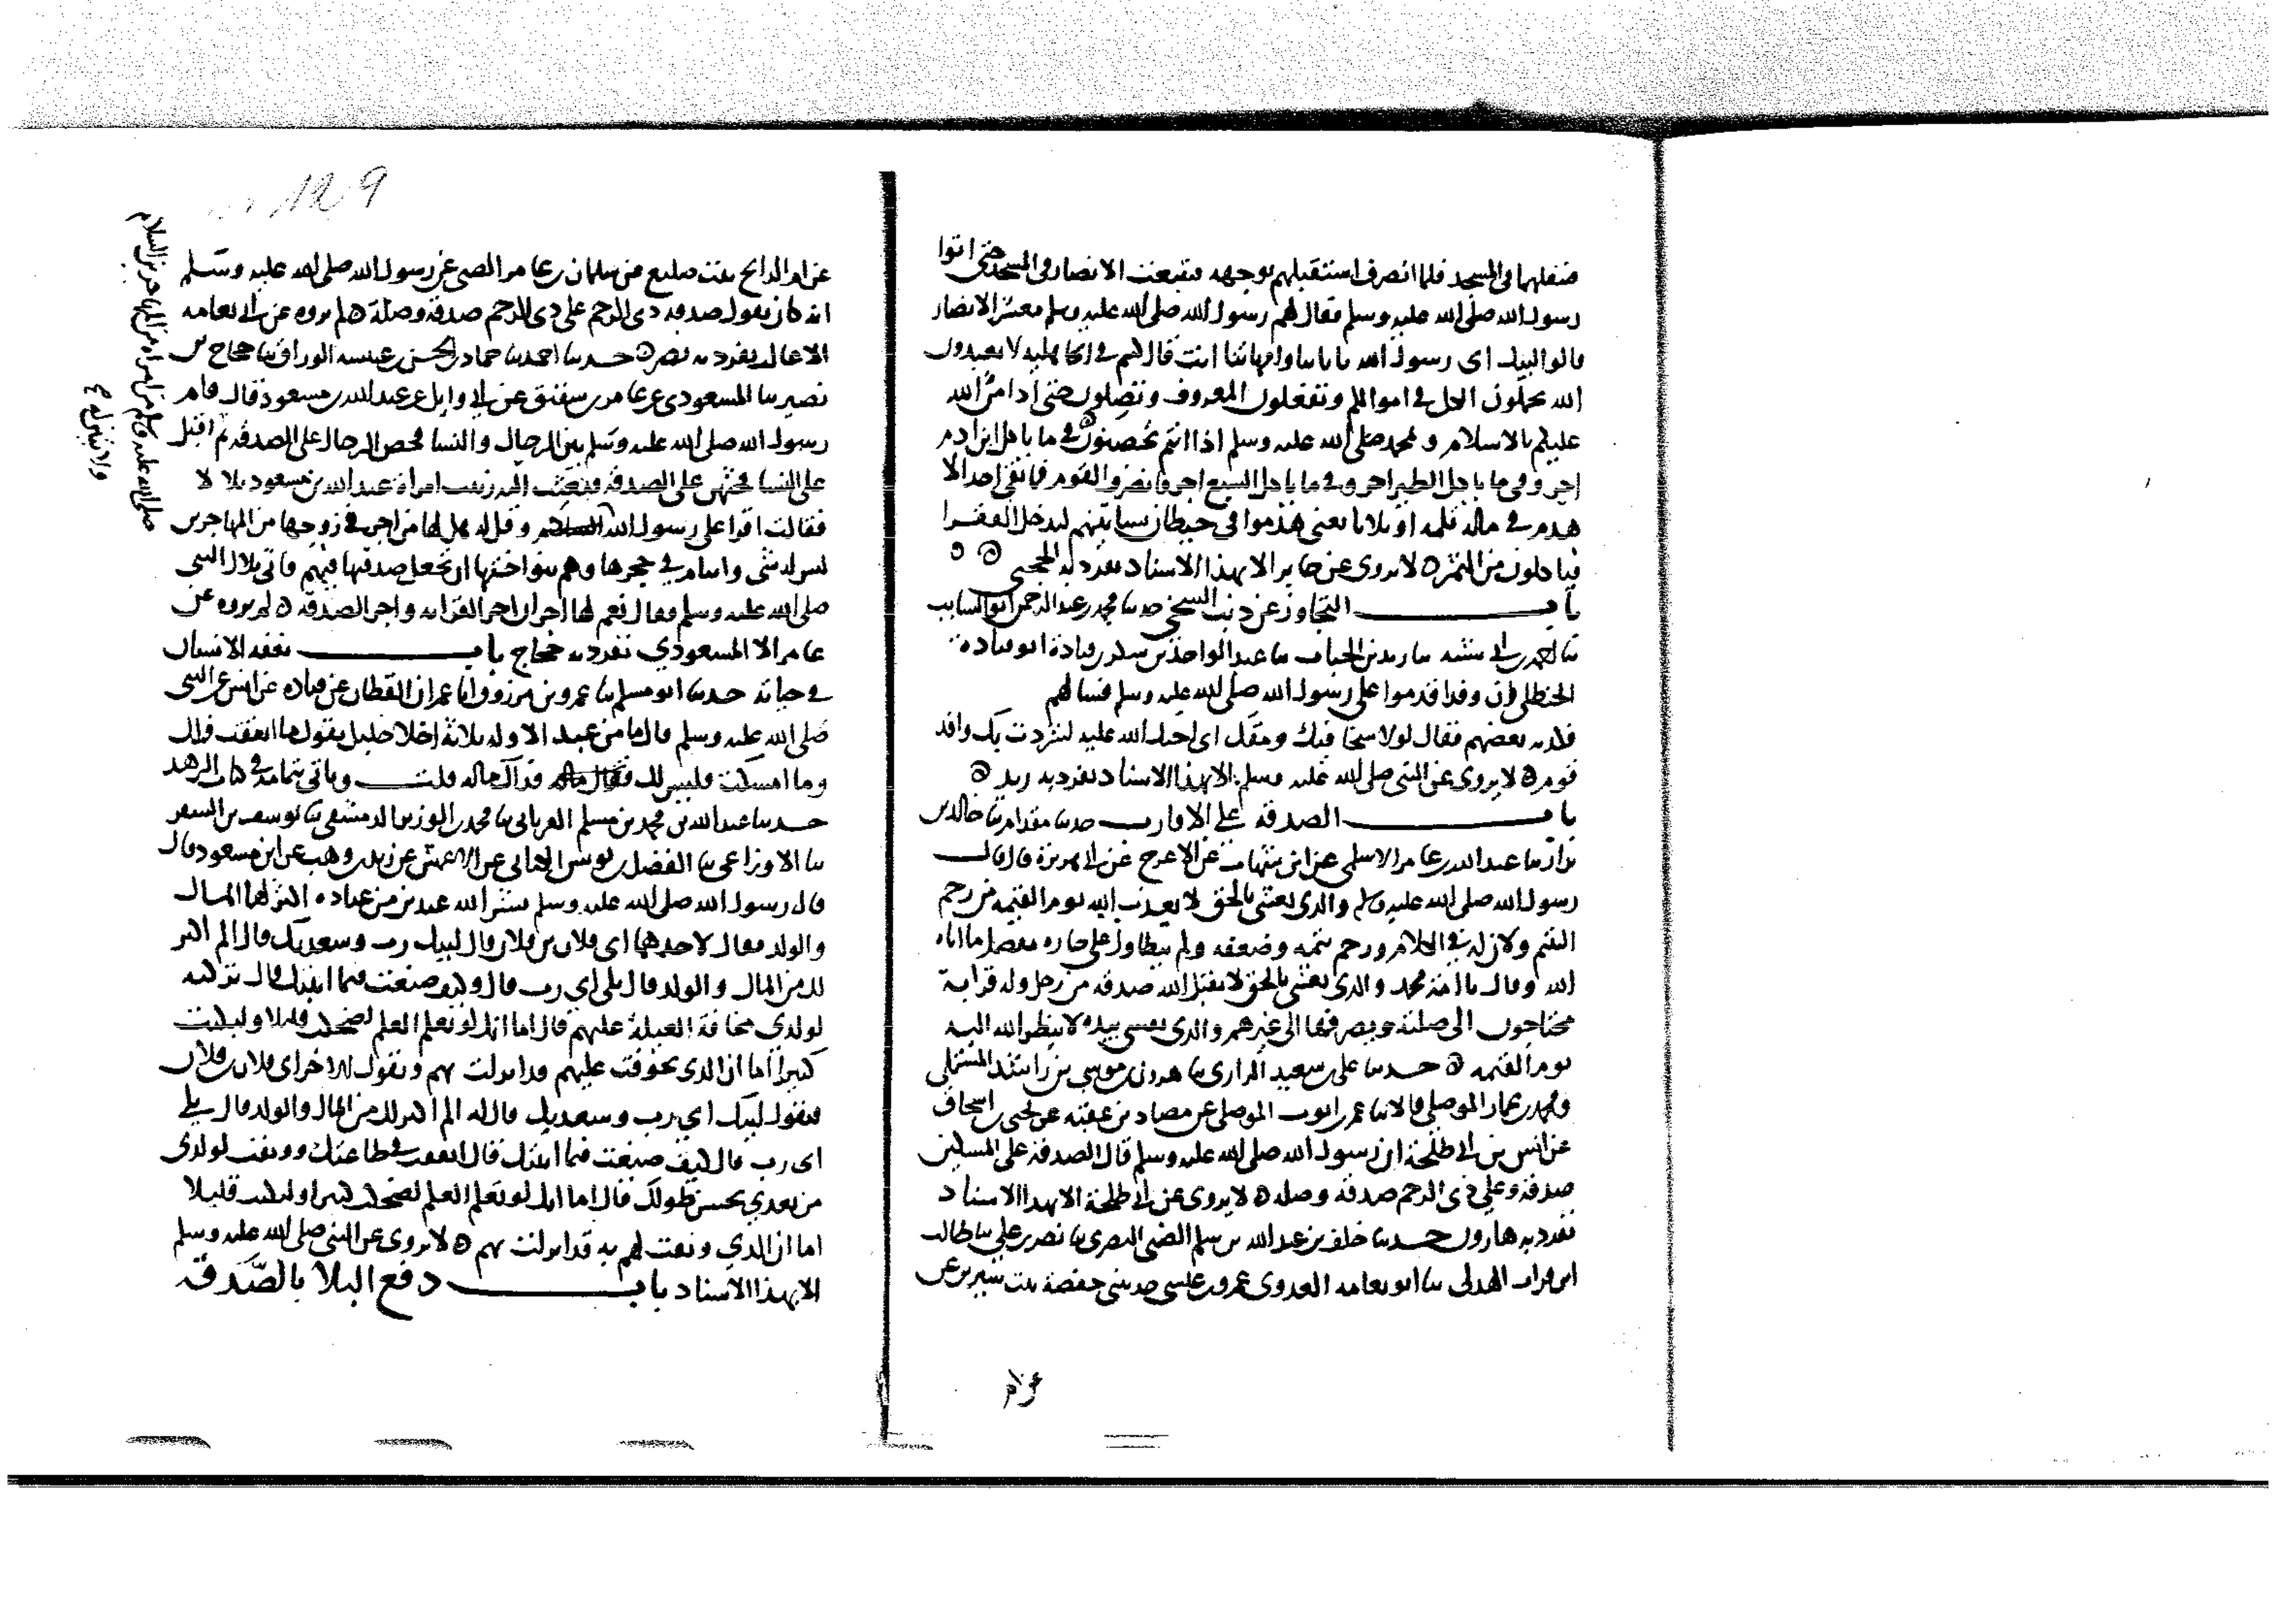 فنفلهما في المسجد فلما انصرف استقبلهم بوجهه فتبعت الانصار في المسجد حتى اتوا
رسول الله صلى الله عليه وسلم فقال لهم رسول الله صلى الله عليه وسلم معشر الانصار
قالوا لبيك اى رسول الله بابائنا وامهاتنا انت قال كنتم في الجاهلية لا تعبدون
الله تحملون الكل في اموالكم وتفعلون المعروف وتصلون حتى اذا من الله
عليكم بالاسلام ومحمد صلى الله عليه وسلم اذا انتم تحصنون في ما ياكل ابن ادم
اجر وفي ما ياكل الطير اجر وفي ما ياكل السبع اجر فانصرف القوم فما بقي احد الا
هدم في ماله ثلمة او ثلاثا يعني هدموا في حيطان بساتينهم ليدخل الفقرا
فياكلون من الثمره لا يروى عن جابر الا بهذا الاسناد تفرد به الحجبي
باب التجاوز عن ذنب السخي حدثنا محمد بن عبد الرحمن ابو السايب
ثنا زيد بن الحباب ثنا عبد الواحد بن
الحنظلي ان وفدا قدموا على رسول الله صلى الله عليه وسلم فسالهم
فكذبه بعضهم فقال لولا سخا فيك ومقك اى احبك الله عليه لشردت بك وافد
قوم ه لا يروى عن النبي صلى الله عليه وسلم الا بهذا الاسناد تفرد به زيد
باب الصدقه على الاقارب حدثنا مقدام ثنا خالد بن
نزار ثنا عبد الله بن عامر الاسلمي عن ابن شهاب عن الاعرج عن ابي هريرة قال قال
رسول الله صلى الله عليه وسلم والذي بعثني بالحق لا يعذب الله يوم القيمه من رحم
اليتيم ولان له في الكلام ورحم يتمه وضعفه ولم يتطاول على جاره بفضل ما اتاه
الله وقال يا امة محمد والذي بعثني بالحق لا يقبل الله صدقه من رجل وله قرابة
محتاجون الى صلته ويصرفها الى غيرهم والذي نفسي بيده لا ينظر الله اليه
يوم القيمه حدثنا على بن سعيد الرازى ثنا هرون بن موسى بن راشد المستملي
ومحمد بن عمار الموصلي قالا ثنا عمر بن ايوب الموصلي عن مصاد بن عقبه عن يحيى بن اسحاق
عن انس بن ابي طلحة ان رسول الله صلى الله عليه وسلم قال الصدقة على المسكين
صدقة وعلى ذى الرحم صدقه وصله ه لا يروى عن ابي طلحة الا بهذا الاسناد
تفرد به هارون حدثنا خلف بن عبد الله بن سلم الضبي البصرى ثنا نصر بن علي ثنا طالب
الهذلى ثنا ابو نعامه العدوى عمرو بن عيسى حدثتني حفصة بنت سيرين عن
عن ام الرائح بنت صليع عن سلمان بن عامر الضبي عن رسول الله صلى الله عليه وسلم
انه كان يقول صدقه ذى الرحم على ذى الرحم صدقة وصلة ه لم يروه عن ابي نعامه
الا طالب تفرد به نصر حدثنا احمد بن حماد بن عنبسه الوراق ثنا حجاج بن
نصير ثنا المسعودى عن عامر بن شقيق عن ابي وايل عن عبد الله بن مسعود قال قام
رسول الله صلى الله عليه وسلم بين الرجال والنسا فحض الرجال على الصدقه ثم اقبل
على النسا فحثهن على الصدقه فبعثت اليه زينب امراة عبد الله بن مسعود بلالا
فقالت اقرا على رسول الله السلام وقل له هل لها من اجر في زوجها من المهاجرين
ليس له شي وايتام في حجرها وهم بنو اختها ان تجعل صدقتها فيهم فاتى بلال النبي
صلى الله عليه وسلم فقال نعم لها اجران اجر القرابه واجر الصدقه ه لم يروه عن
عامر الا المسعودي تفرد به حجاج باب نفقه الانسان
في حياته حدثنا ابو مسلم ثنا عمرو بن مرزوق انا عمران القطان عن قتاده عن انس عن النبي
صلى الله عليه وسلم قال ما من عبد الا وله ثلاثة اخلا خليل يقول ما انفقت فلك
وما امسكت فليس لك فذلك ماله قلت وياتي بتمامه في كتاب الزهد
حدثنا عبد الله بن محمد بن مسلم الفريابي ثنا محمد بن الوزير الدمشقي ثنا يوسف بن السفر
ثنا الاوزاعي ثنا الفضل بن يونس الكناني عن الاعمش عن زيد بن وهب عن ابن مسعود قال
قال رسول الله صلى الله عليه وسلم نشر الله عبدين من عباده اكثر لهما المال
والولد فقال لاحدهما اى فلان بن فلان قال لبيك رب وسعديك قال الم اكثر
لك من المال والولد قال بلى اي رب قال وكيف صنعت فيما اتيتك قال تركته
لولدى مخافة العيلة عليهم قال اما انك لو تعلم العلم لضحكت قليلا ولبكيت
كثيرا اما ان الذى تخوفت عليهم قد انزلت بهم ويقول للاخر اى فلان بن فلان
فيقول لبيك اي رب وسعديك قال له الم اكثر لك من المال والولد قال بلى
اى رب قال كيف صنعت فيما اتيتك قال انفقت في طاعتك ووثقت لولدى
من بعدي بحسن طولك قال اما انك لو تعلم العلم لضحكت كثيرا ولبكيت قليلا
اما ان الذي وثقت لهم به قد انزلت بهم ه لا يروى عن النبي صلى الله عليه وسلم
الا بهذا الاسناد باب دفع البلا بالصدقة